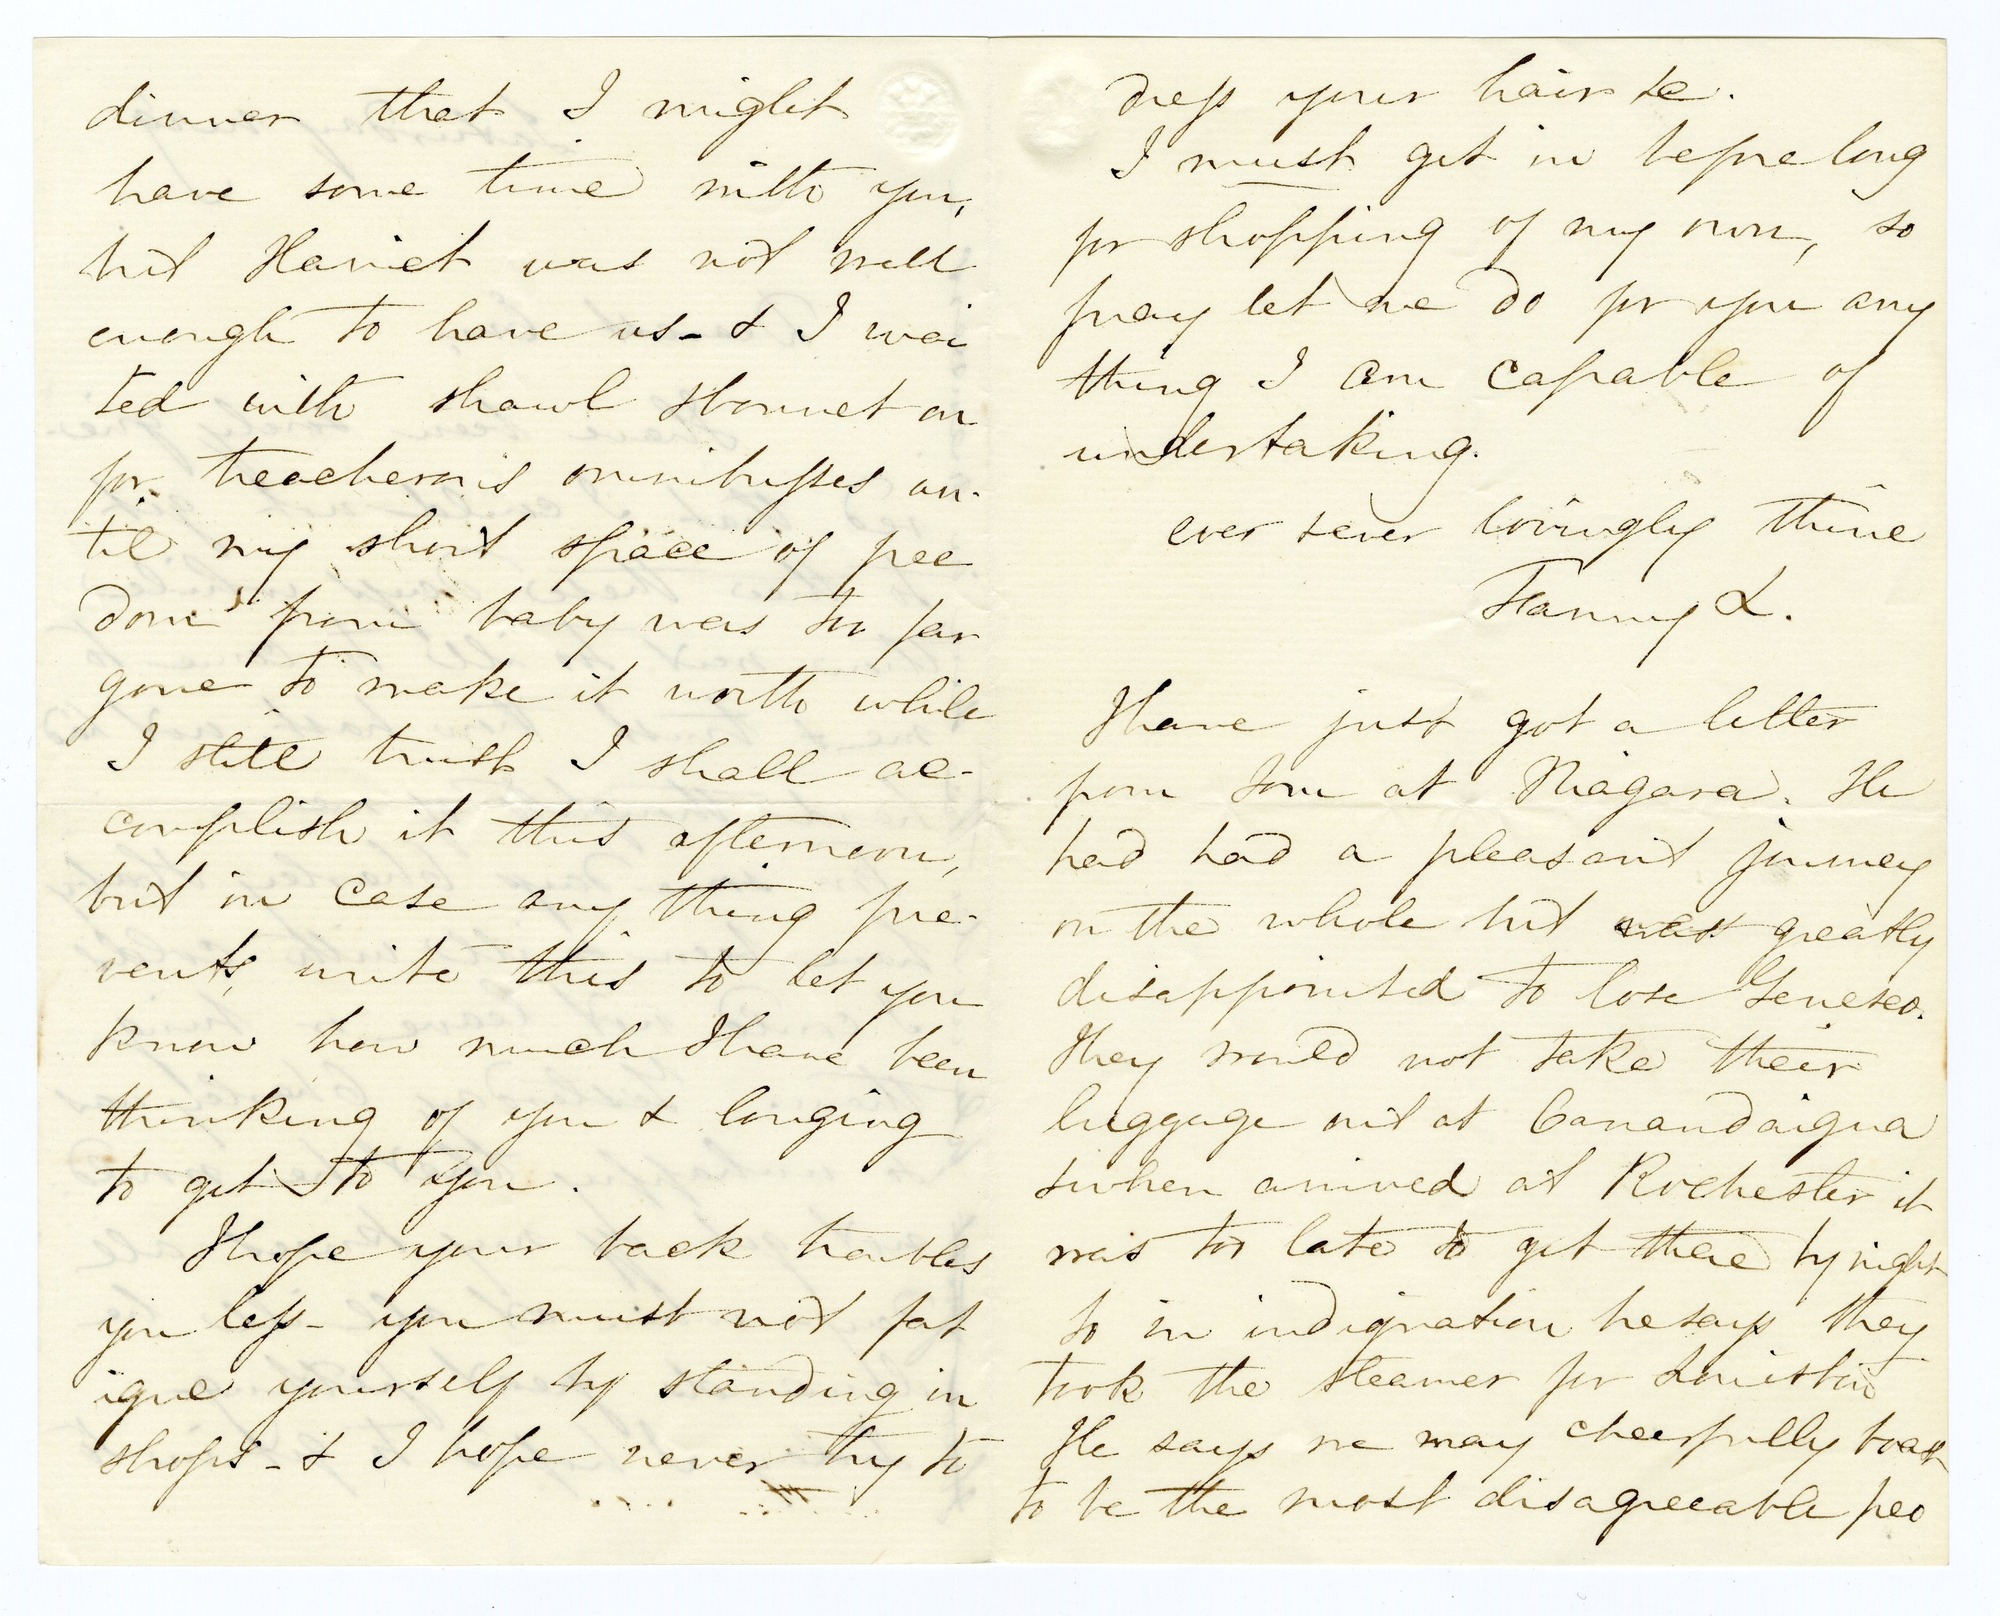 dinner that I might
have some time with you,
but Harriet was not well
enough to have us - & I wai
ted with shawl & bonnet on
for treacherous omnibusses un-
til my short space of free
dom from baby was too far
gone to make it worth while
I still trust I shall ac-
complish it this afternoon,
but in case any thing pre-
vents, write this to let you
know how much I have been
thinking of you & longing
to get to you.
I hope your back troubles
you less - you must not fat
igue yourself by standing in
shops - & I hope never try to
dress your hair &c.
I must get in before long
for shopping of my own, so
pray let me do for you any
thing I am capable of
undertaking.
ever & ever lovingly thine
Fanny L.
I have just got a letter
from Tom at Niagara. He
had had a pleasant journey
on the whole but was greatly
disappointed to lose Geneseo.
They would not take their
luggage out at Canandaigua
& when arrived at Rochester it
was too late to get there by night
so in indignation he says they
took the steamer for Lewiston
He says we may cheerfully boast
to be the most disagreeable peo